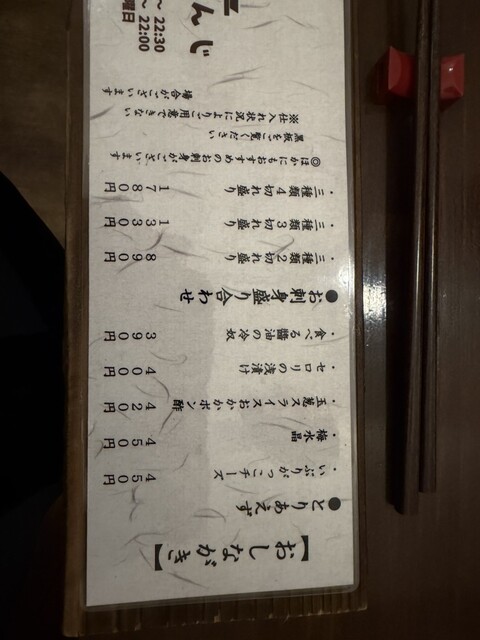 【おしながき】
●とりあえず
・いぶりがっこチーズ 450円
・梅水晶 450円
・玉葱スライスおかかポン酢 420円
・セロリの浅漬け 400円
・食べる醤油の冷奴 390円
●お刺身盛り合わせ
・三種類2切れ盛り 890円
・三種類3切れ盛り 1330円
・三種類4切れ盛り 1780円
◎ほかにもおすすめのお刺身がございます
黒板をご覧ください
※仕入れ状況によりご用意できない
場合がございます
んじ
～ 22:30
～ 22:00
曜日